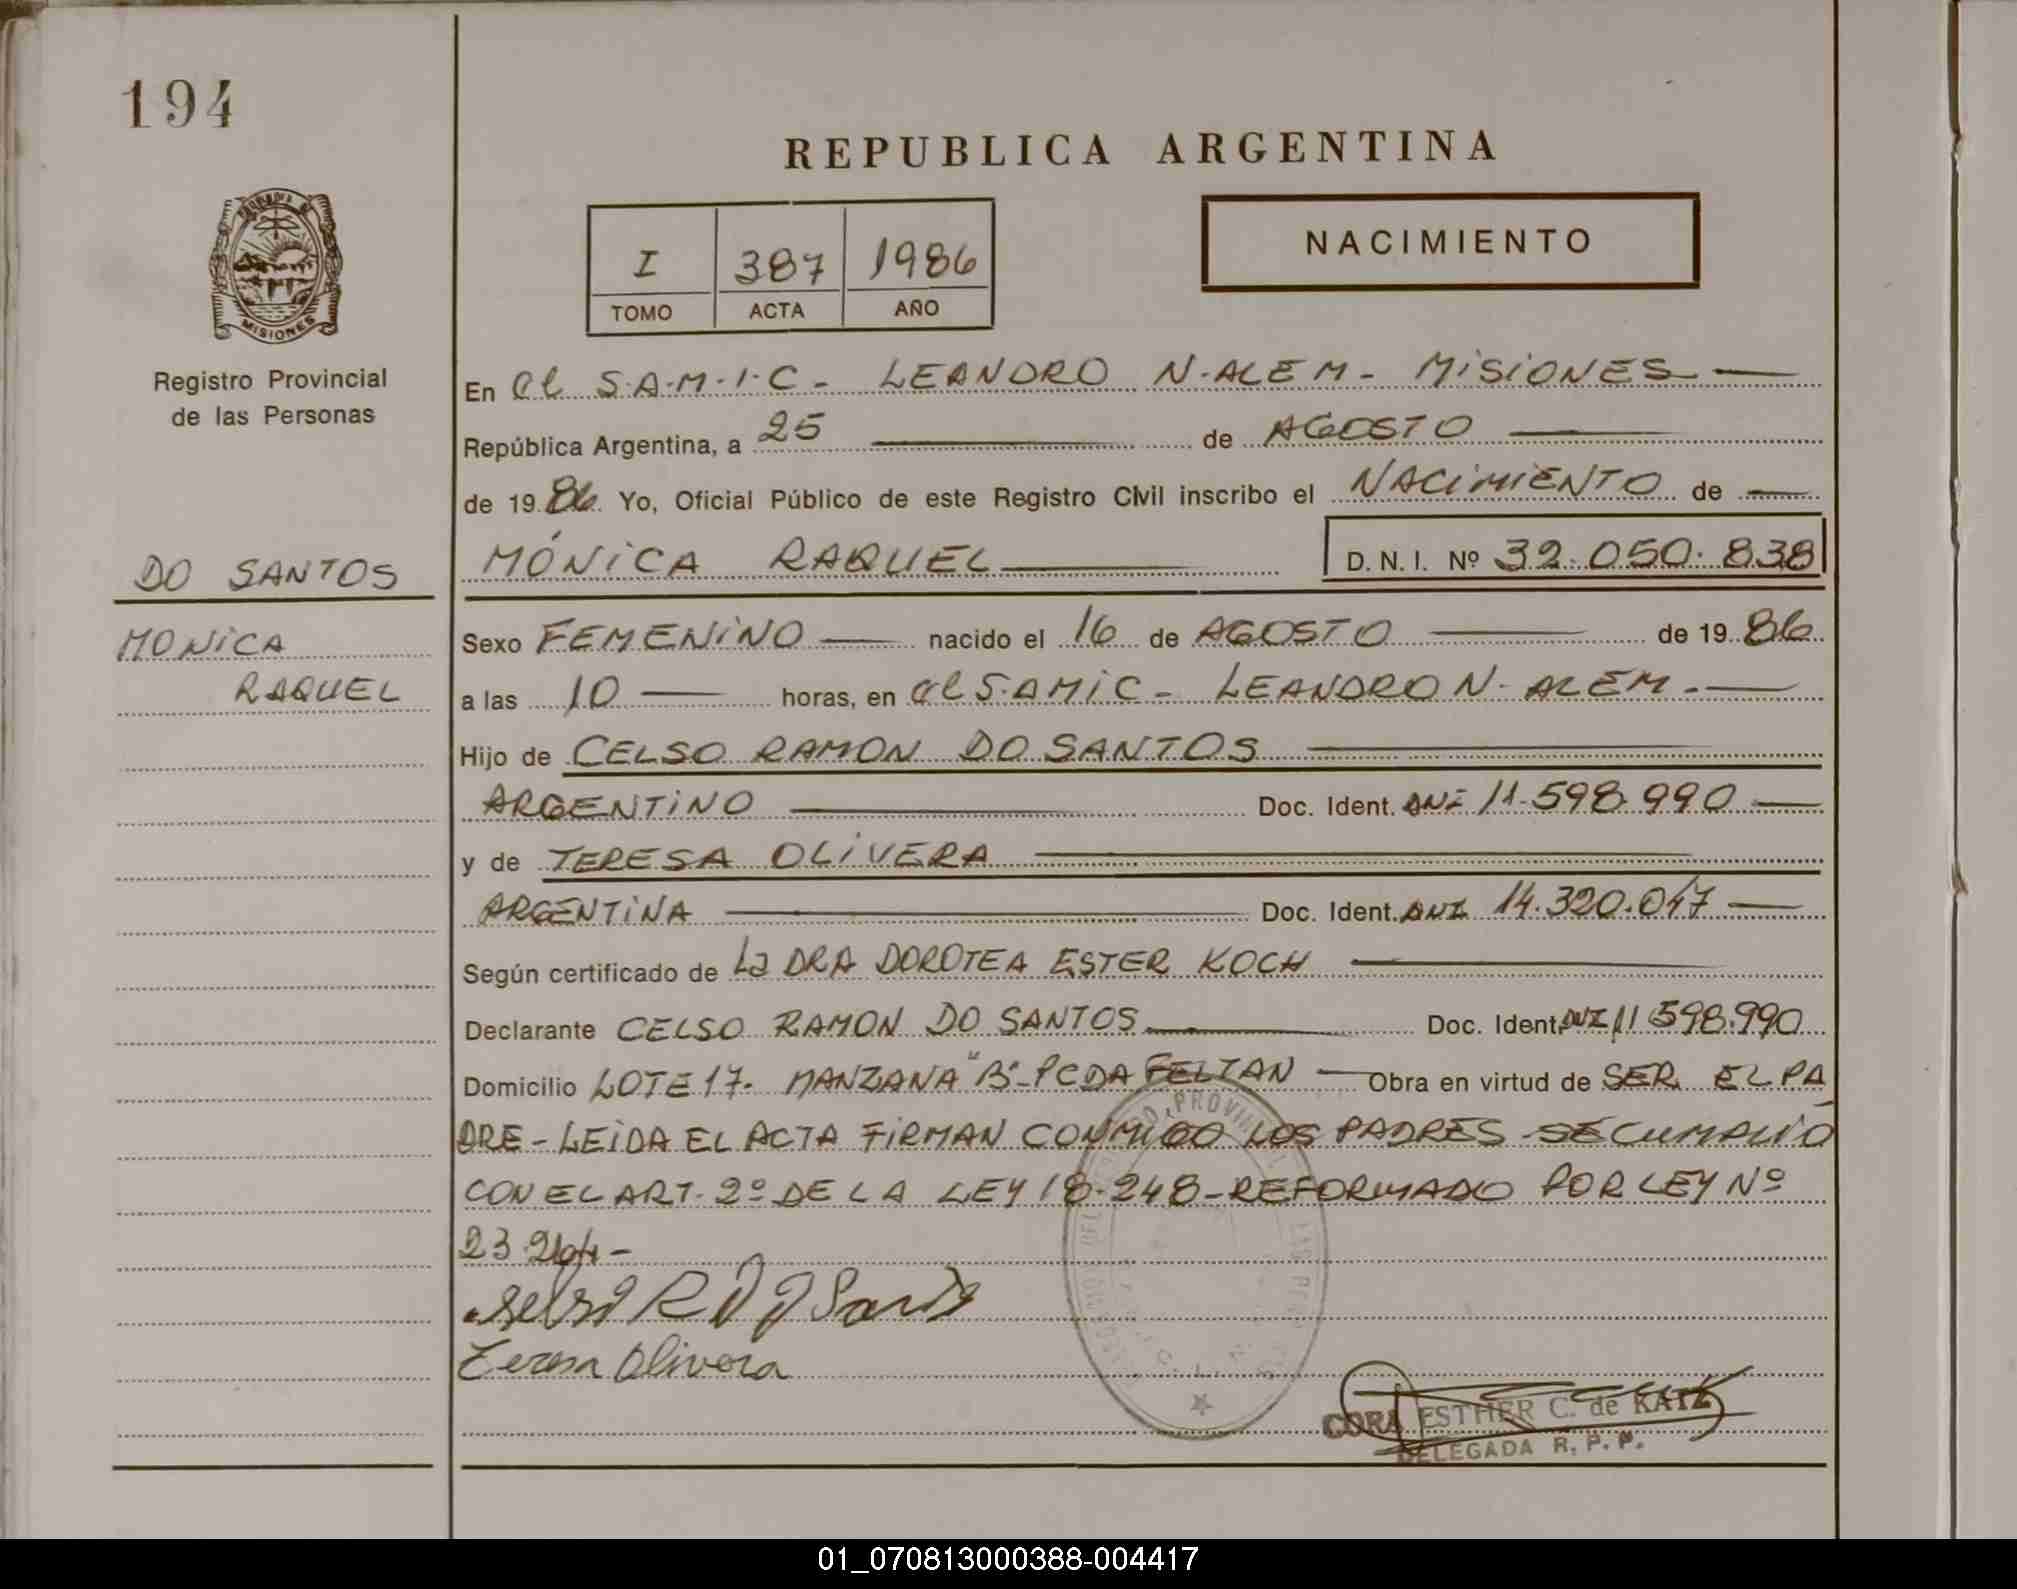 194
REPUBLICA ARGENTINA
NACIMIENTO
I 387 1986
TOMO ACTA AÑO
MISIONES
Registro Provincial
de las Personas
En el S.A.M.I.C. - LEANDRO N. ALEM - MISIONES
República Argentina, a 25 de AGOSTO
de 1986 Yo, Oficial Público de este Registro Civil inscribo el NACIMIENTO de
DO SANTOS
MÓNICA RAQUEL D. N. I. Nº 32.050.838
MONICA
RAQUEL
Sexo FEMENINO nacido el 16 de AGOSTO de 1986
a las 10 horas, en el S.AMIC - LEANDRO N. ALEM -
Hijo de CELSO RAMON DO SANTOS
ARGENTINO Doc. Ident. DNI 11.598.990
y de TERESA OLIVERA
ARGENTINA Doc. Ident. DNI 14.320.047
Según certificado de La DRA DOROTEA ESTER KOCH
Declarante CELSO RAMON DO SANTOS Doc. Ident. DNI 11.598.990
Domicilio LOTE 17. MANZANA "B" - PCDA FELTAN Obra en virtud de SER EL PA
DRE - LEIDA EL ACTA FIRMAN CONMIGO LOS PADRES - SE CUMPLIÓ
CON EL ART. 2º DE LA LEY 18.248 - REFORMADO POR LEY Nº
23.264 -
Teresa Olivera
CORA ESTHER C. de KATZ
DELEGADA R. P. P.
01_070813000388-004417